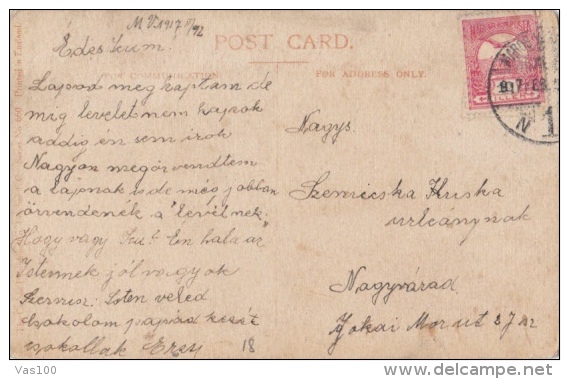 M V 1917 II/92
Édes Icum!
POST CARD.
FOR COMMUNICATION.
FOR ADDRESS ONLY.
Printed in England
Lapod meg kaptam de
mig levelet nem kapok
addig én sem irok
Nagyon megörvendtem
a lapnak is de még jobban
örvendenék a "levélnek."
Hogy vagy Icu? Én hála az
Istennek jól vagyok
Szervusz. Isten veled
csokolom kezét
csokollak Erzsi 18
Nagys.
Szemicska Iluska
urleánynak
Nagyvárad
Jokai Mor ut 37
1
Vas100
delcampe.net